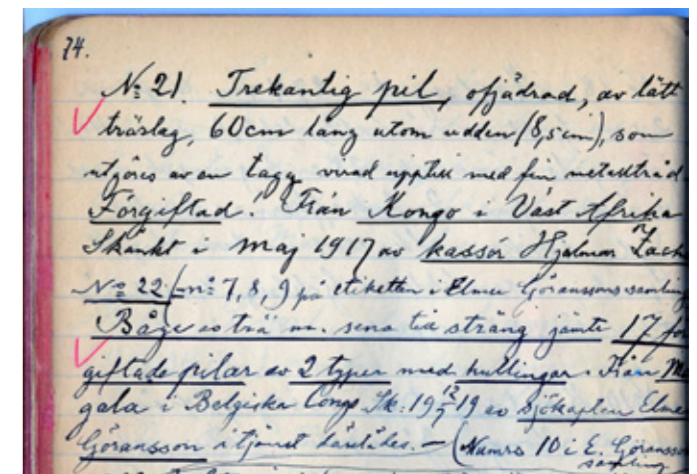 74.
No: 21. Trekantig pil, ofjädrad, av lätt
träslag, 60cm lång utom udden (8,5cm), som
utgöres av en tagg virad upptill med fin metalltråd
Förgiftad! Från Kongo i Väst Afrika
Skänkt i maj 1917 av kassör Hjalmar Zach
No 22 (=no: 7, 8, 9 på etiketten i Elmer Göranssons samling
Båge av trä m. sena till sträng jämte 17 för
giftade pilar av 2 typer med hullingar. Från M
gala i Belgiska Congo Sk: 19 12/7 19 av sjökapten Elme
Göransson i tjänst därstädes. — (Numro 10 i E. Göransson
samling